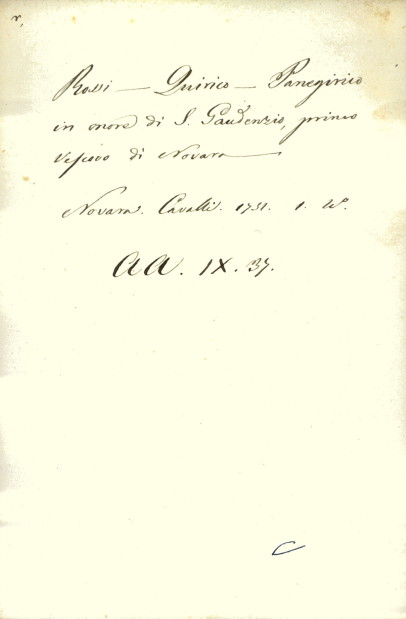 r,
Rossi — Quirico — Panegirico
in onore di S. Gaudenzio, primo
Vescovo di Novara —
Novara. Cavalli. 1751. 1.
AA. IX. 37.
C